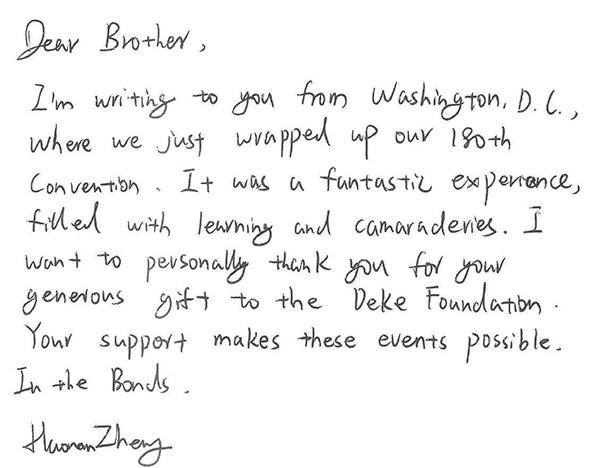 Dear Brother,
I'm writing to you from Washington, D.C.,
where we just wrapped up our 180th
Convention. It was a fantastic experience,
filled with learning and camaraderies. I
want to personally thank you for your
generous gift to the Deke Foundation.
Your support makes these events possible.
In the Bonds.
Haonan Zheng